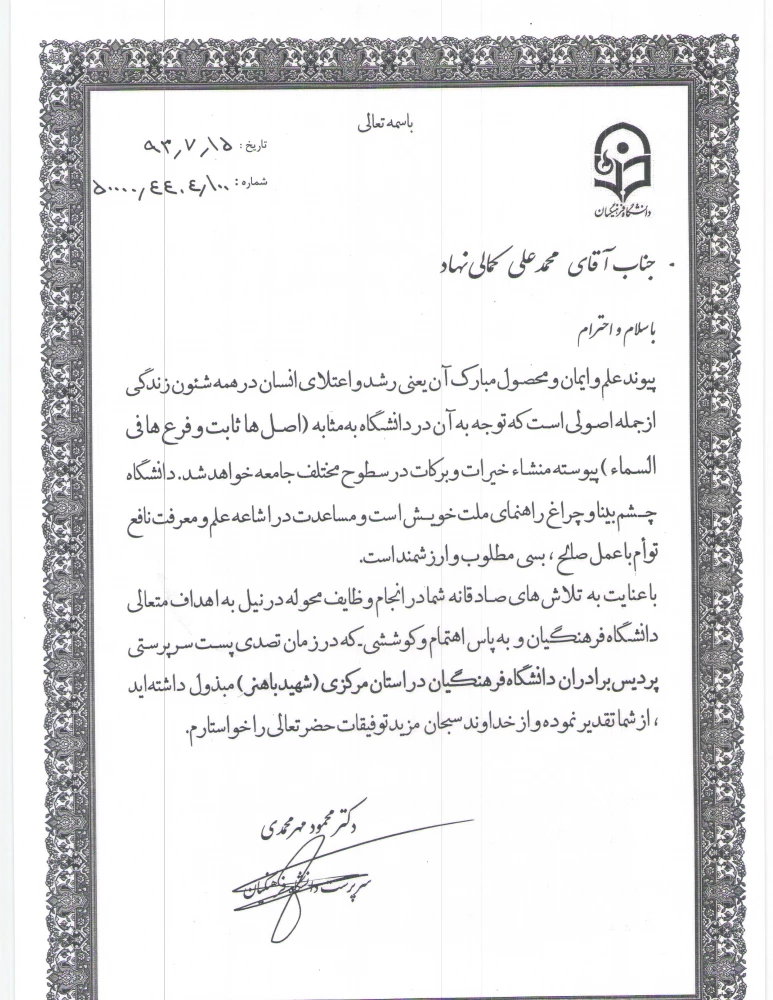 باسمه تعالی
تاریخ: ۹۳٫۷٫۱۵
شماره: ۵۰۰۰۰٫۴۴۰٫۴٫۱۰۰
دانشگاه فرهنگیان
جناب آقای محمدعلی کمالی نهاد
با سلام و احترام
پیوند علم و ایمان و محصول مبارک آن یعنی رشد و اعتلای انسان در همه شئون زندگی
از جمله اصولی است که توجه به آن در دانشگاه به مثابه (اصل ها ثابت و فرع ها فی
السماء) پیوسته منشاء خیرات و برکات در سطوح مختلف جامعه خواهد شد. دانشگاه
چشم بینا و چراغ راهنمای ملت خویش است و مساعدت در اشاعه علم و معرفت نافع
توأم با عمل صالح، بسی مطلوب و ارزشمند است.
با عنایت به تلاش های صادقانه شما در انجام وظایف محوله در نیل به اهداف متعالی
دانشگاه فرهنگیان و به پاس اهتمام و کوششی که در زمان تصدی پست سرپرستی
پردیس برادران دانشگاه فرهنگیان در استان مرکزی (شهید باهنر) مبذول داشته اید
، از شما تقدیر نموده و از خداوند سبحان مزید توفیقات حضرتعالی را خواستارم.
دکتر محمود مهرمحمدی
سرپرست دانشگاه فرهنگیان